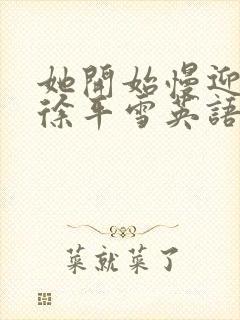 她開始慢迎
徐平雪英語
菜就菜了